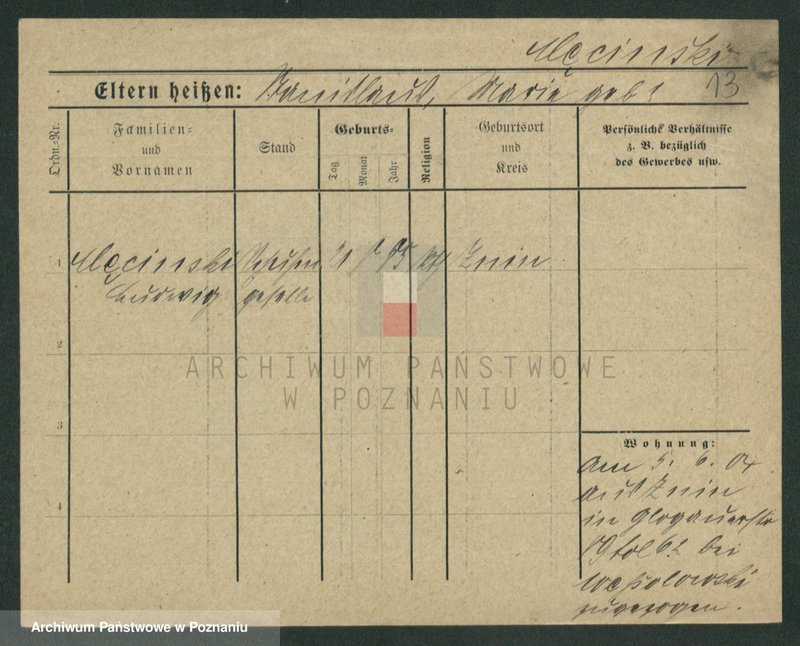 Męcinski
Eltern heißen: Stanislaus, Marie geb.
13
Ordn.=Nr.
Familien=
und
Vornamen
Stand
Geburts=
Tag
Monat
Jahr
Religion
Geburtsort
und
Kreis
Persönliche Verhältnisse
z. B. bezüglich
des Gewerbes usw.
1 Męcinski 85 Znin
Ludwig geselle
2
ARCHIWUM PAŃSTWOWE
W POZNANIU
3
Wohnung:
am 5. 6. 04
aus Znin
in Glogauerstr
bei
4
zugezogen.
Archiwum Państwowe w Poznaniu